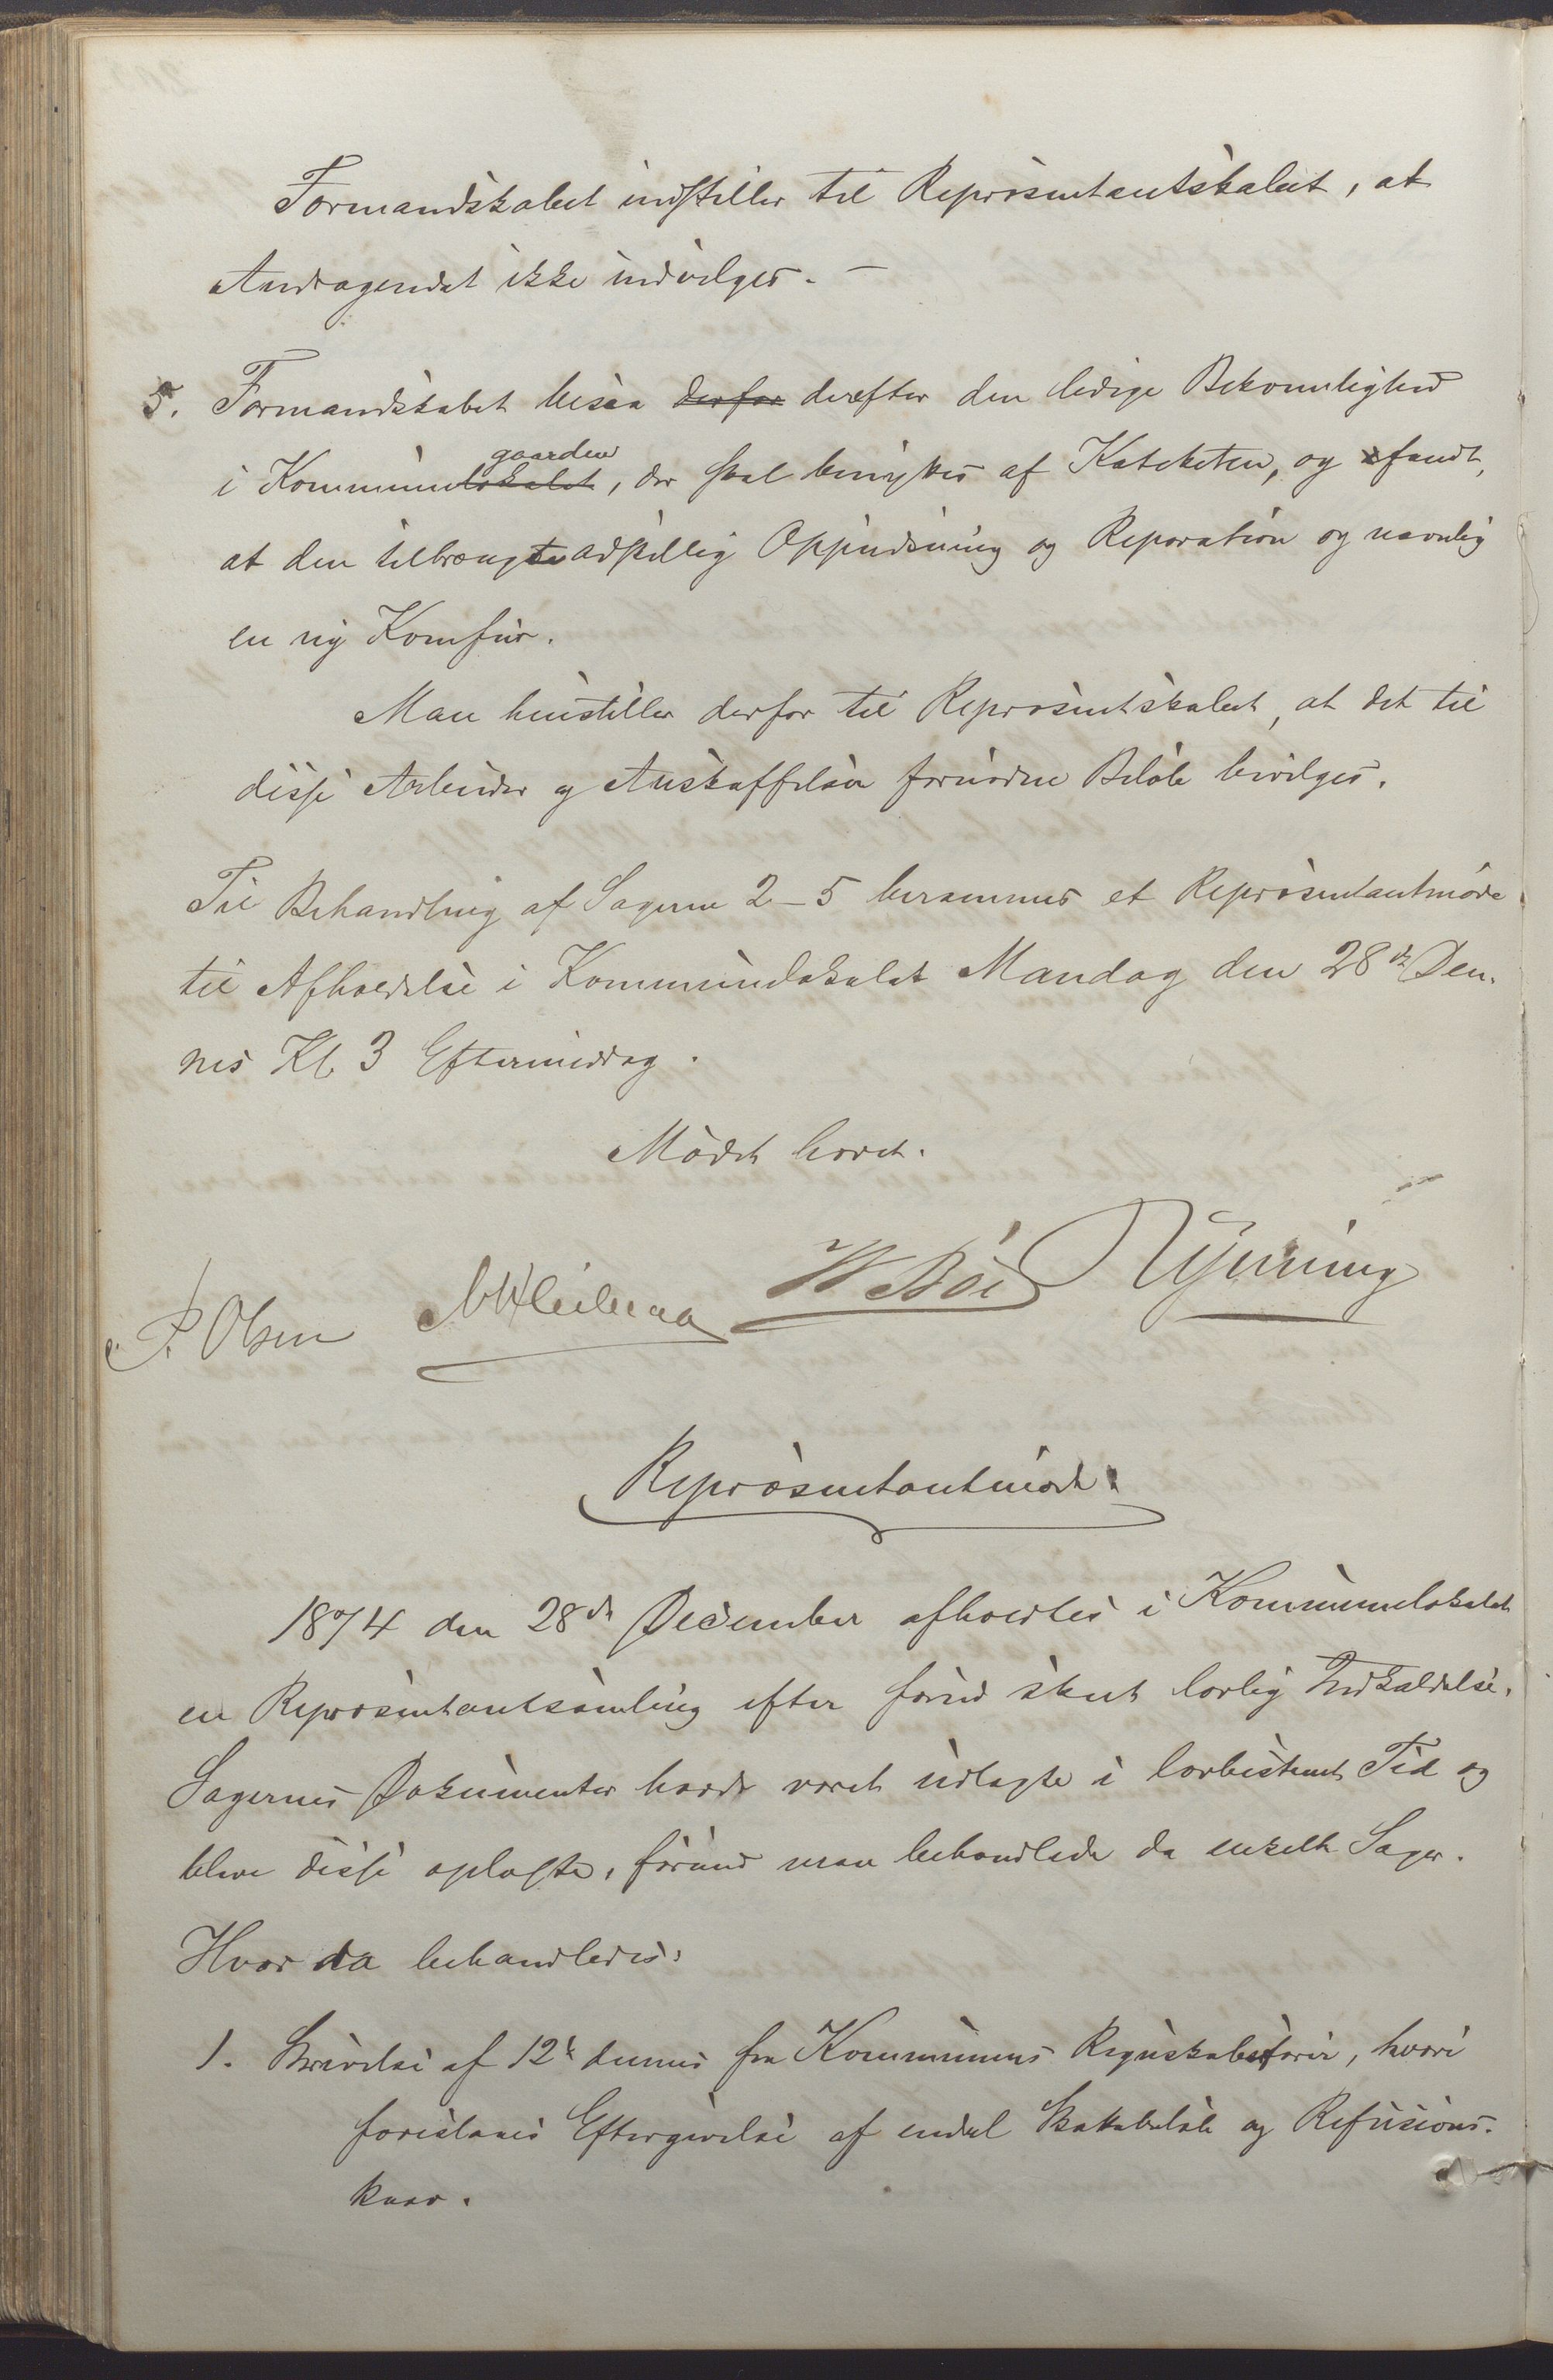 Formandskabet indstiller til Repræsentantskabet, at
Andragendet ikke indvilges. —
5. Formandskabet besaa derfor derefter den ledige Bekvemlighed
i Kommunelokalet gaarden, der skal benyttes af Kateketen, og fandt,
at den tiltrængte adskillig Oppudsning og Reparation og navnlig
en ny Komfur.
Man henstiller derfor til Repræsentskabet, at det til
disse Arbeider og Anskaffelser fornødne Beløb bevilges.
Til Behandling af Sagerne 2–5 berammes et Repræsentantmøde
til Afholdelse i Kommunelokalet Mandag den 28de Den-
nes Kl. 3 Eftermiddag.
Mødet hævet.
P. Olsen W Bøe Rynning
Repræsentantmøde.
1874 den 28de December afholdtes i Kommunelokalet
en Repræsentantsamling efter forud skeet lovlig Indkaldelse.
Sagernes Dokumenter havde været udlagte i lovbestemt Tid og
bleve disse oplæste, førend man behandlede de enkelte Sager.
Hvor da behandledes:
1. Skrivelse af 12te dennes fra Kommunens Regnskabsfører, hvori
foreslaaes Eftergivelse af endel Skattebeløb og Refusions-
krav.